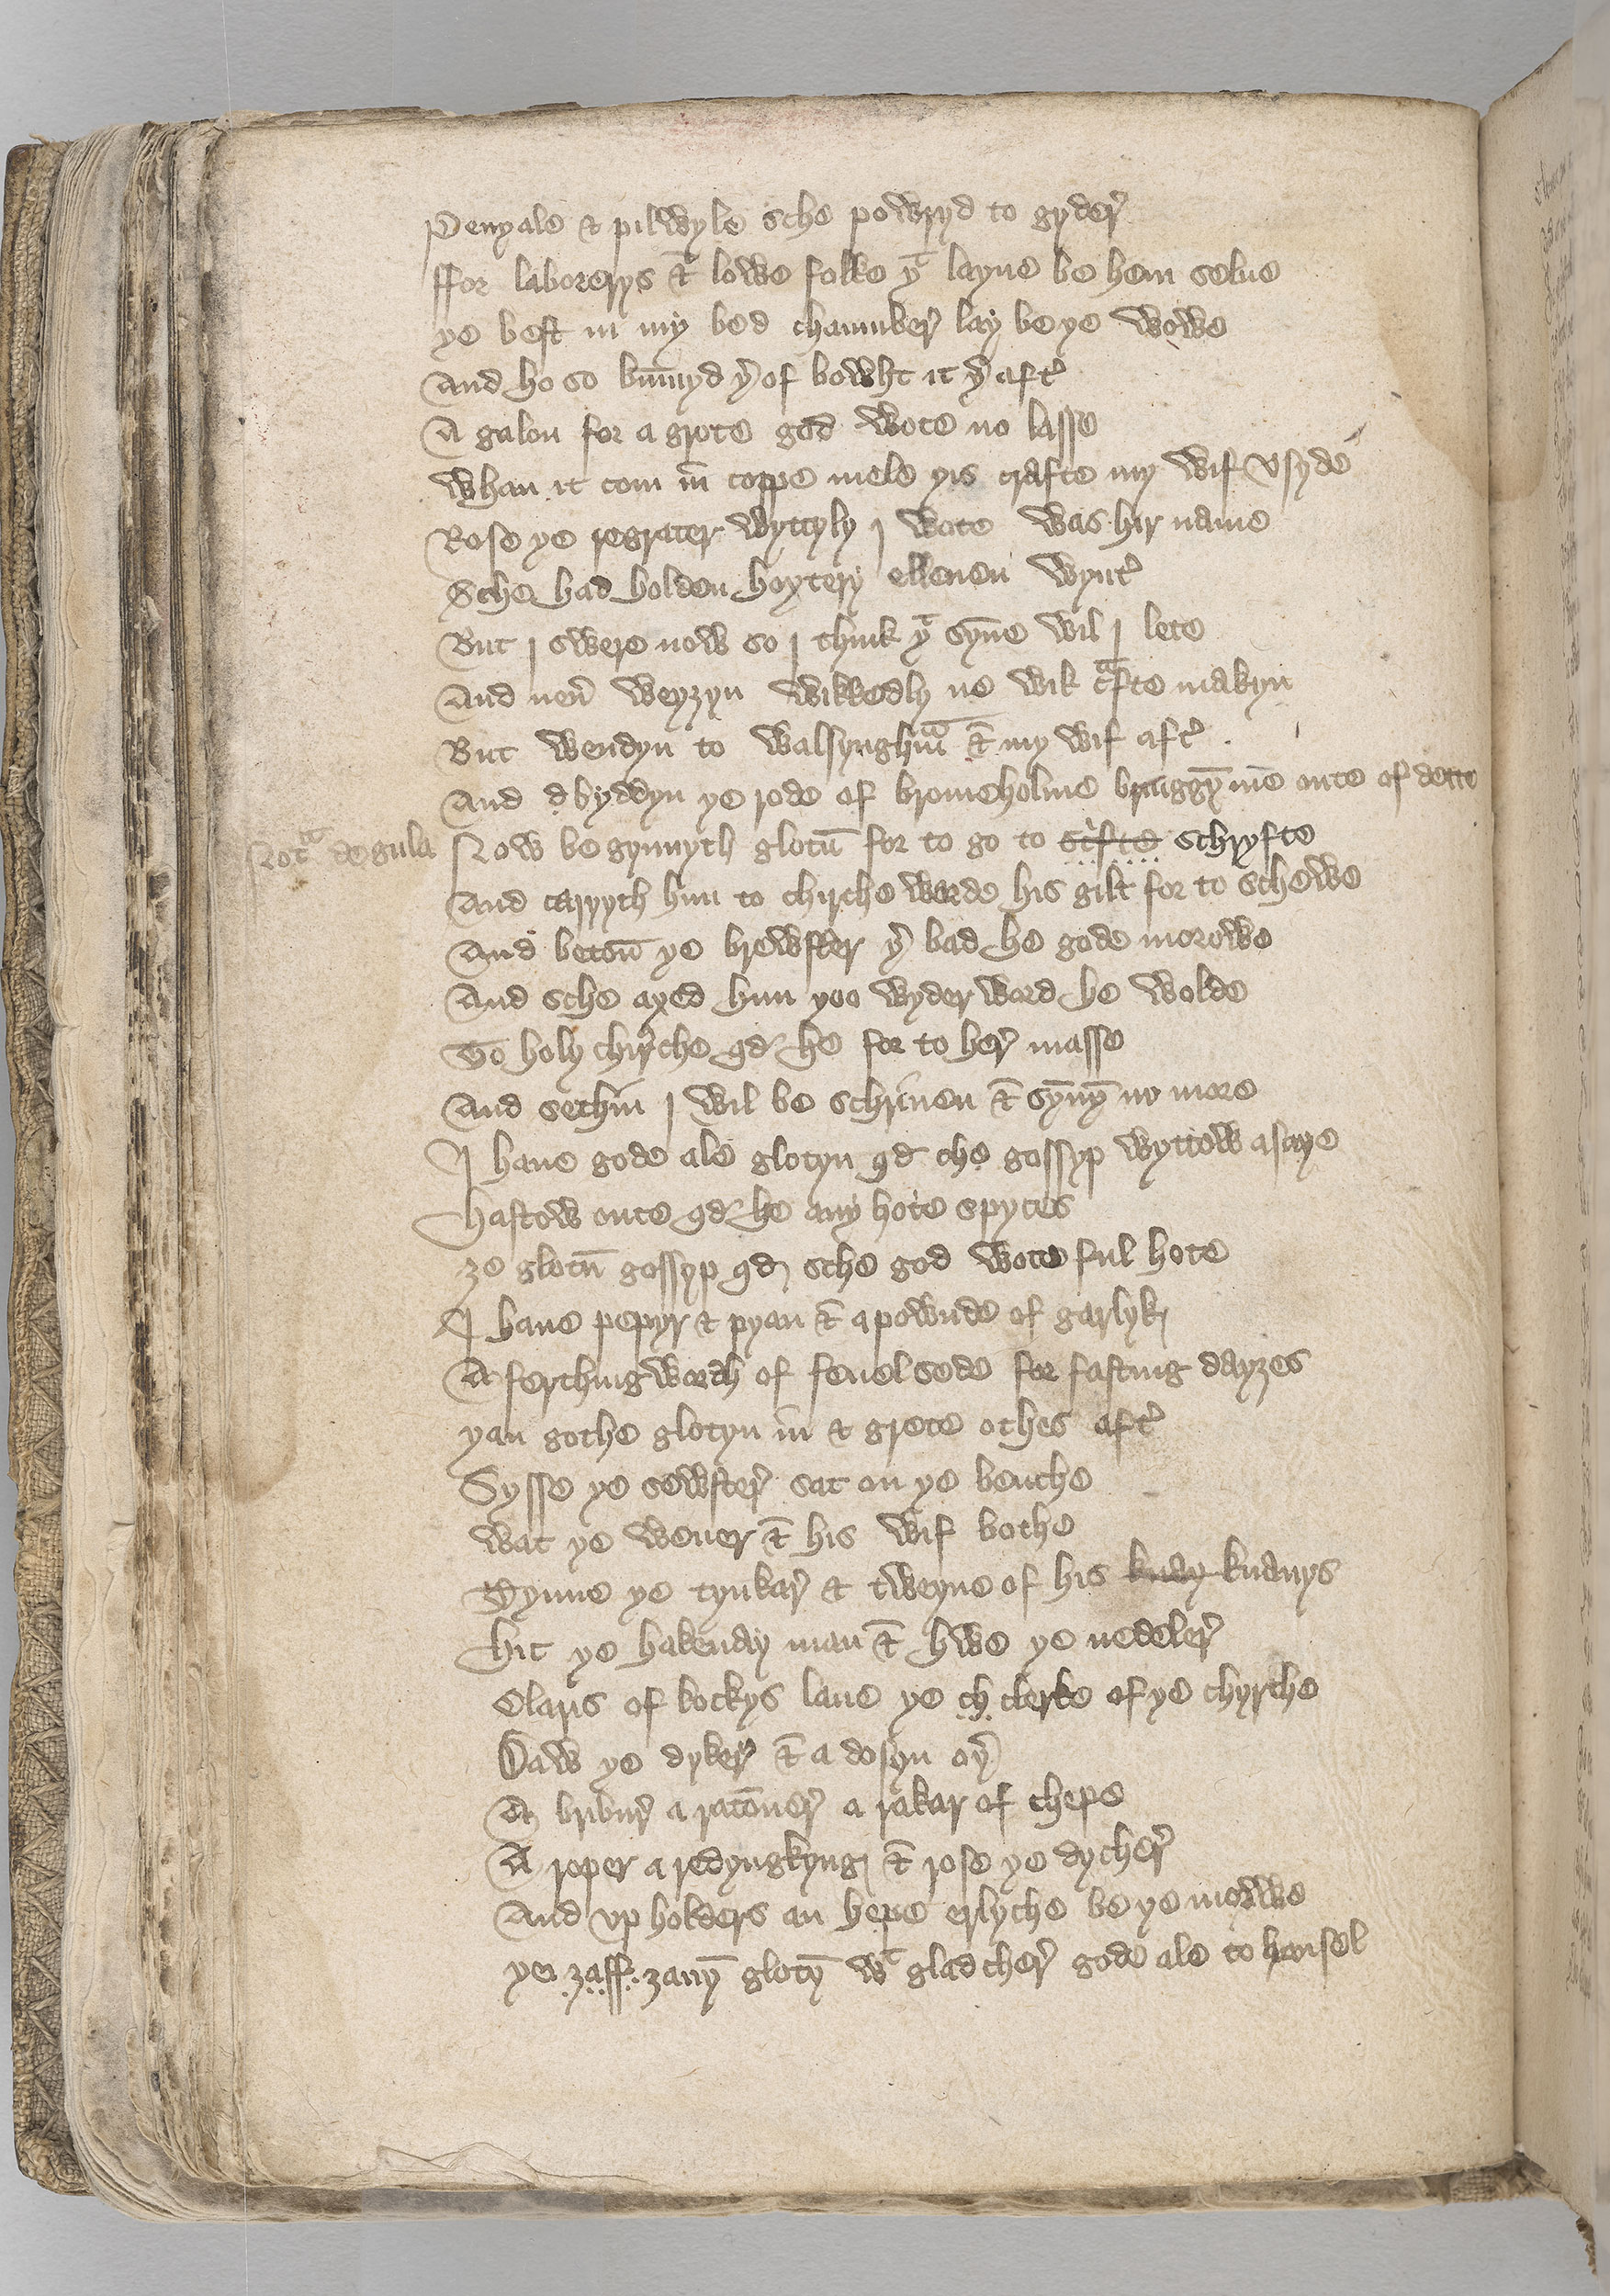 Penyale & pilwyle sche powryd to gyder̛
ffor laborerys & lowe folke yͭ layne be hem selue
ye best in my bed chaumber̛ lay be ye wowe
And ho so bu̅myd y̛ of bowht it y̛ aft̛
A galon for a grote god wote no lasse
Whan it com in̅ coppe mele yis crafte my wif vsyde
Rose ye regrater wyttyly I wote was hir name
Sche had holden hoxtery elleuen wynt̛
But I swere now so I think yͭ syn̅e wil I lete
And neư weyzyn wikkedly ne wik cͣfte makyn
But wendyn to walsynghm̅ͣ & my wif aft̛
And d byddyn ye rode of bromeholme bringgy̅ me oute of dette
Notͣ de gula Now be gynnyth glotu̅ for to go to scͥfte schryfte
And caryyth him to chirche werde his gilt for to schewe
And betou̅ ye brewster y̛ bad he gode morowe
And sche axed him yoo wyder ward he wolde
To holy chirche qd he for to her̛ masse
And sethin̅ I wil be schriuen & sy̅ny̅ no more
I haue gode ale glotyn qd che gossyp wyttow asaye
Hastow oute qd he any hote spyces
ze glotu̅ gossyp qd sche god wote ful hote
I haue pepyr & pyan & a pownde of garlyk
A ferthing worth of fenel sede for fasting dayzes
yan gothe glotyn in̅ & grete othes aft̛
Sysse ye sewster̛ sat on ye benche
wat ye weuer & his wif bothe
Tynne ye tynkar̛ & tweyne of his knay knauys
Hit ye hakenay man & hwe ye nedeler̛
Claris of kockys lane ye ch clerke of ye chyrche
Daw ye dyker̛ & a dosyn oy̛
A bribur̛ a rato̅ner̛ a rakar of chepe
A roper a redyngkyng & rose ye dycher̛
And vp holders an hepe erlyche be ye morwe
yei zaff zauy̅ gloty̅ wͭ glad cher̛ gode ale to hansel